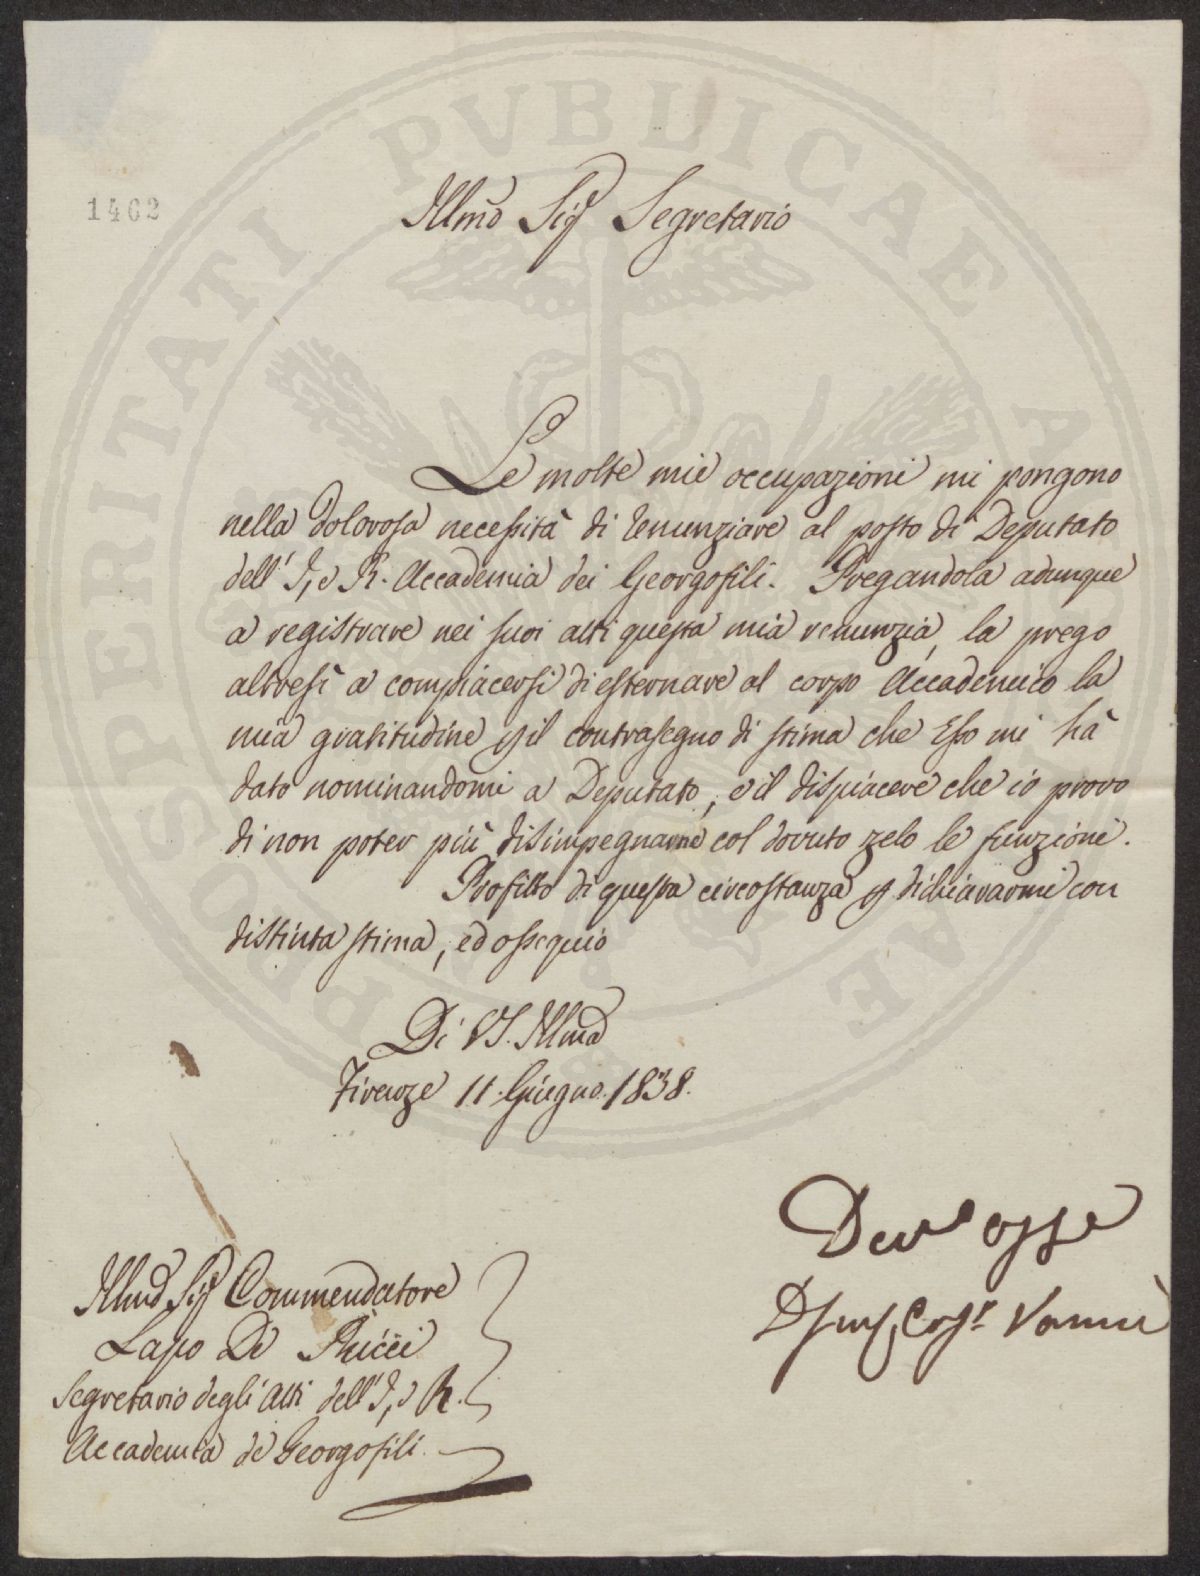 PROSPERITATI PVBLICAE AVGENDAE
1462
Illmo Sigr Segretario
Le molte mie occupazioni mi pongono
nella dolorosa necessità di renunziare al posto di Deputato
dell' I, e R. Accademia dei Georgofili. Pregandola adunque
a registrare nei suoi atti questa mia renunzia, la prego
altresì a compiacersi di esternare al corpo Accademico la
mia gratitudine pil contrasegno di stima che Esso mi hà
dato nominandomi a Deputato, e il dispiacere che io provo
di non poter più disimpegnarne col dovuto zelo le funzioni.
Profitto di questa circostanza p dichiararmi con
distinta stima, ed ossequio
Di VS. Illma
Firenze 11. Giugno. 1838.
Illmo Sigr Commendatore
Lapo De Ricci
Segretario degli Atti dell' I, e R.
Accademia de Georgofili.
Devo osse
Vanni